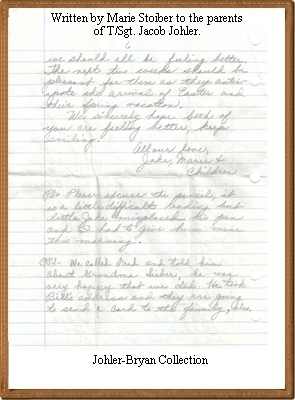 Written by Marie Stoiber to the parents
of T/Sgt. Jacob Johler.
6
we should all be feeling better.
The next two weeks should be
pleasant for them as they antici-
pate the arrival of Easter and
their spring vacation.
We sincerely hope both of
you are feeling better, keep
smiling.
All our love,
Jake, Marie &
Children
PS- Please excuse the pencil, it
is a little difficult reading but
little Jake misplaced his pen
and I had to give him mine
this morning.
PPS- We called Fred and told him
about Grandma Sieber, he was
very happy that we did. He took
Bill's address and they are going
to send a card to the family, also.
Johler-Bryan Collection